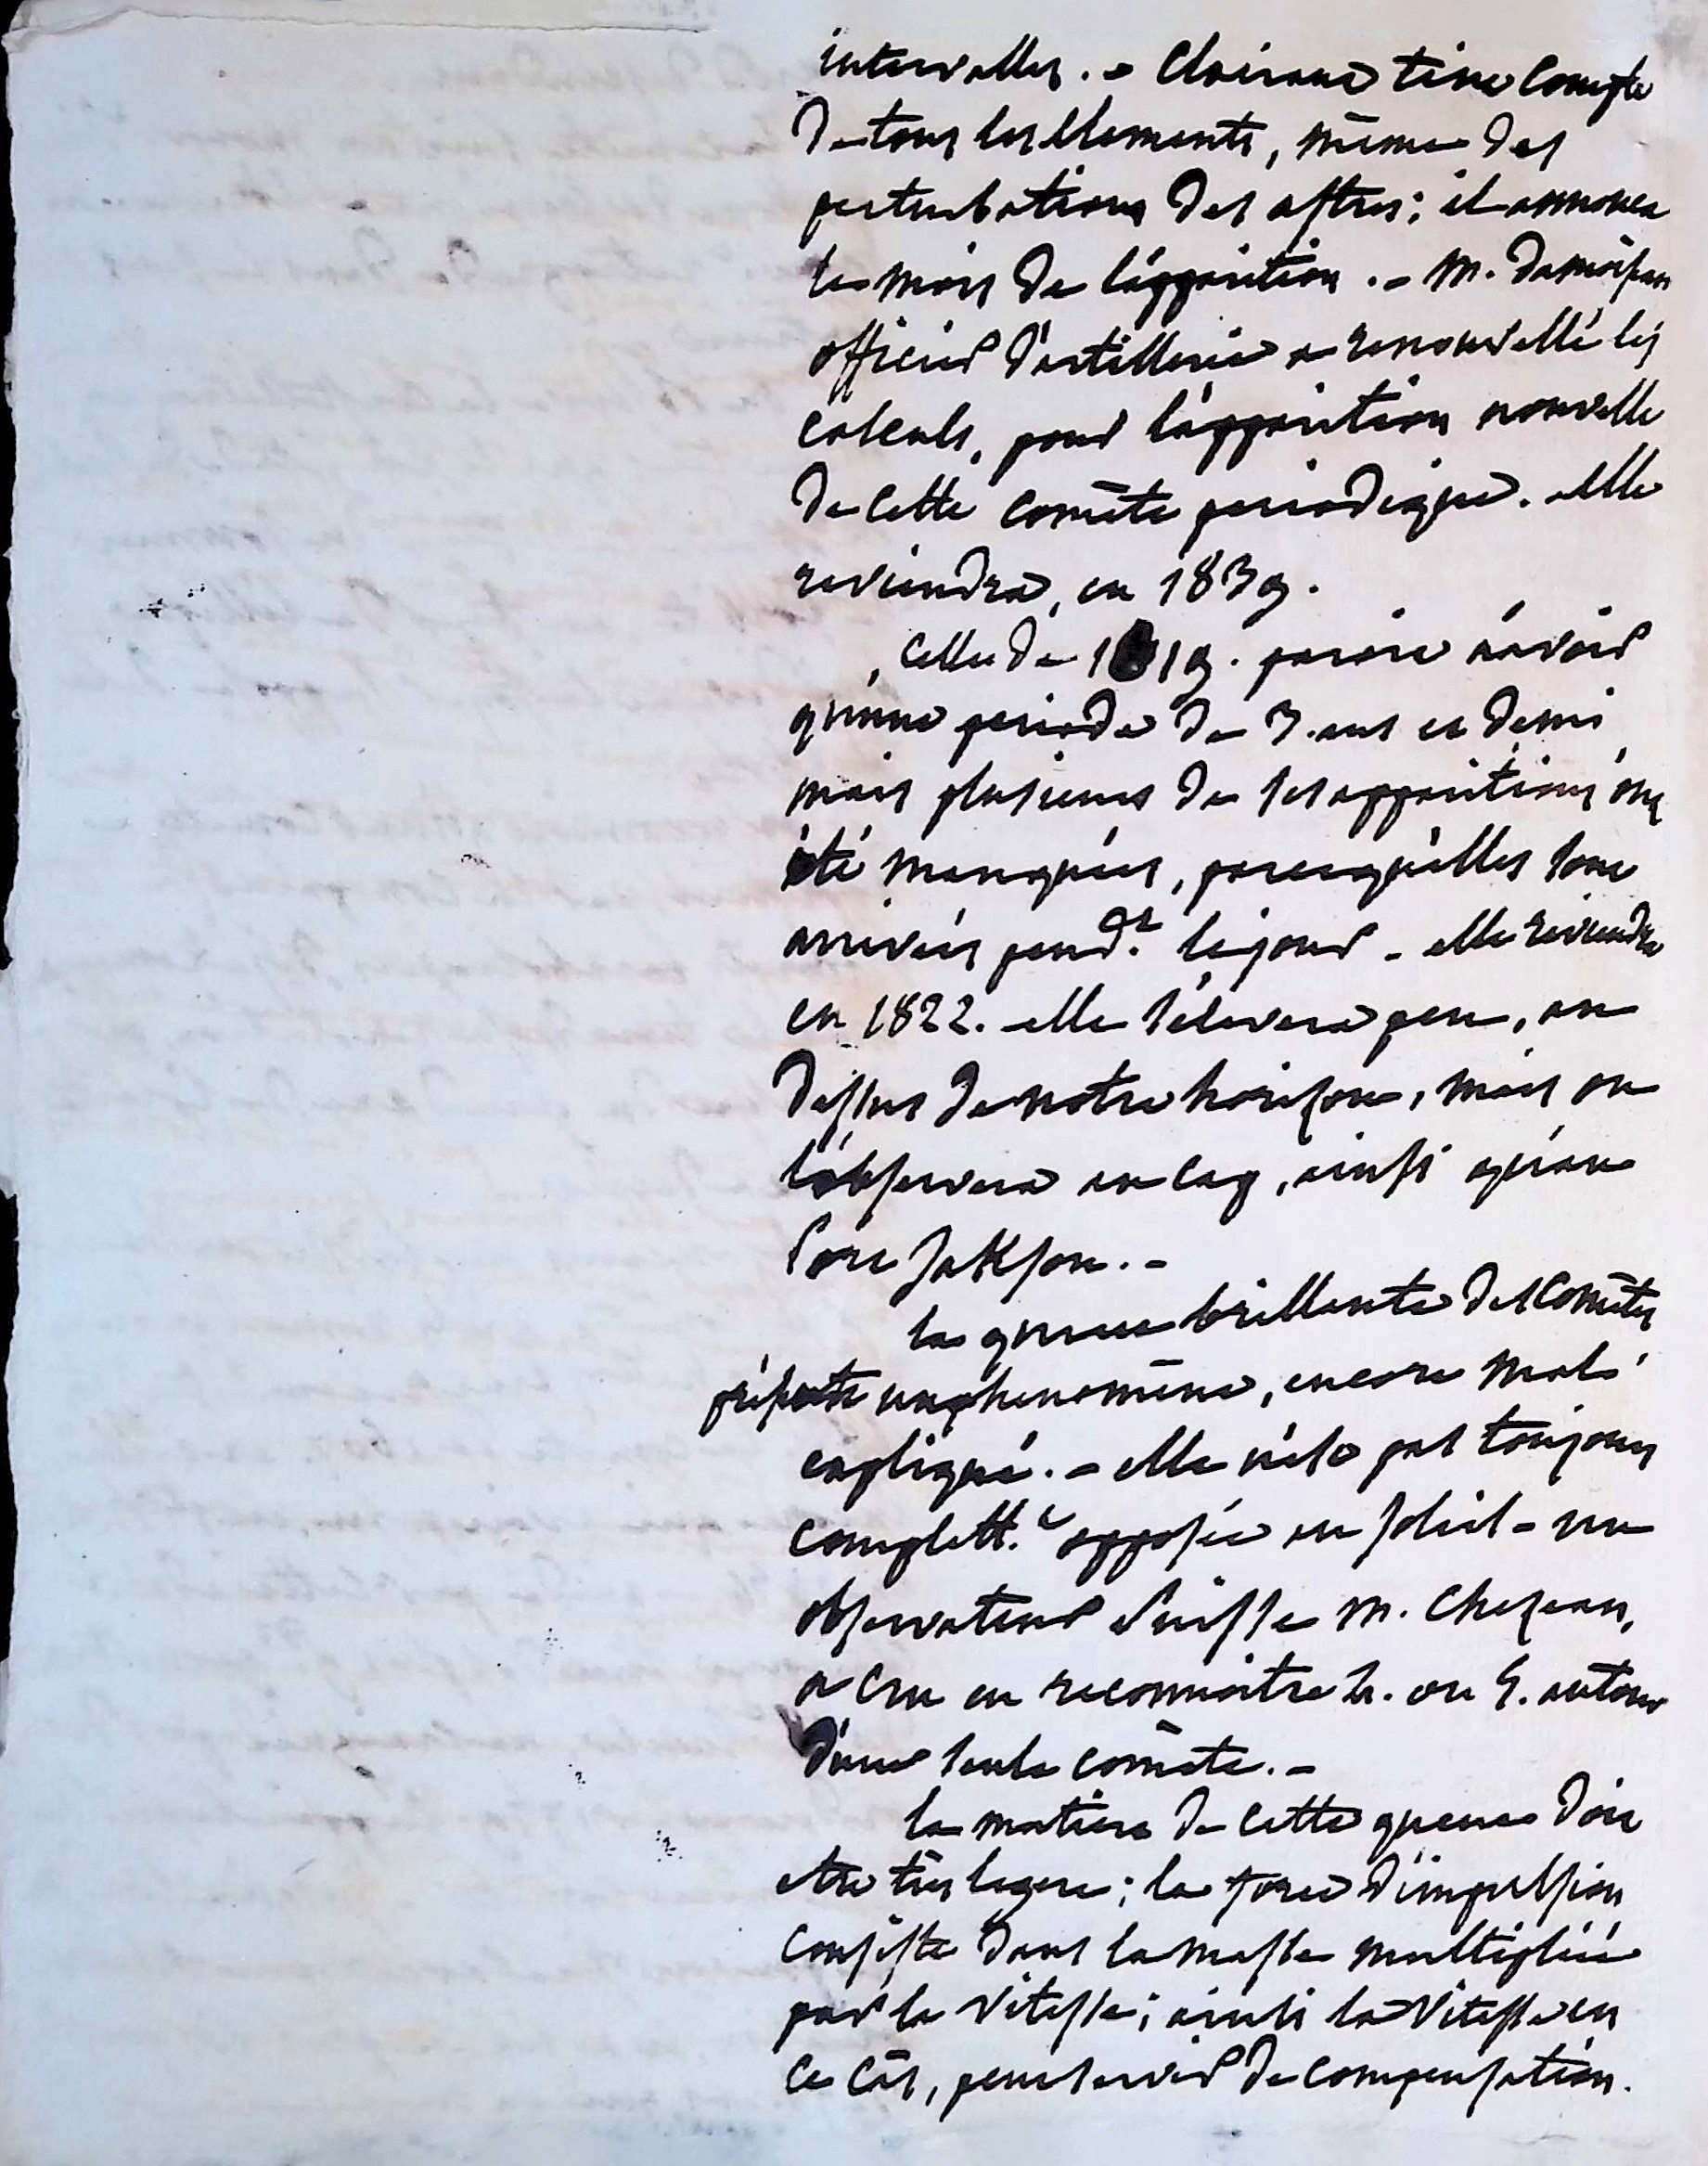 intervalles. - Clairaut tint compte
de tous les elements, même des
perturbations des astres; il annonca
le mois de l'apparition. - M. Damoiseau
officier d'artillerie a renouvellé les
calculs, pour l'apparition nouvelle
de cette comête periodique. elle
reviendra, en 1839.
celle de 1819. parait n'avoir
qu'une periode de 3. ans et demi,
mais plusieurs de ses apparitions ont
été manquées, parcequ'elles sont
arrivées pend.t le jour - elle reviendra
en 1822. elle s'elevera peu, au
dessus de notre horison, mais on
l'observera au cap, ainsi qu'au
Port Jakson. -
la queue brillante des comêtes
présente un phenomêne, encore mal
expliqué. - elle n'est pas toujours
complett.t opposée au soleil - un
observateur Suisse M. Cheseau,
a cru en reconnoitre 4. ou 5. autour
d'une seule comête. -
la matiere de cette queue doit
etre très legere; la force d'impulsion
consiste dans la masse multipliée
par la vitesse; ainsi la vitesse en
ce câs, peut servir de compensation.